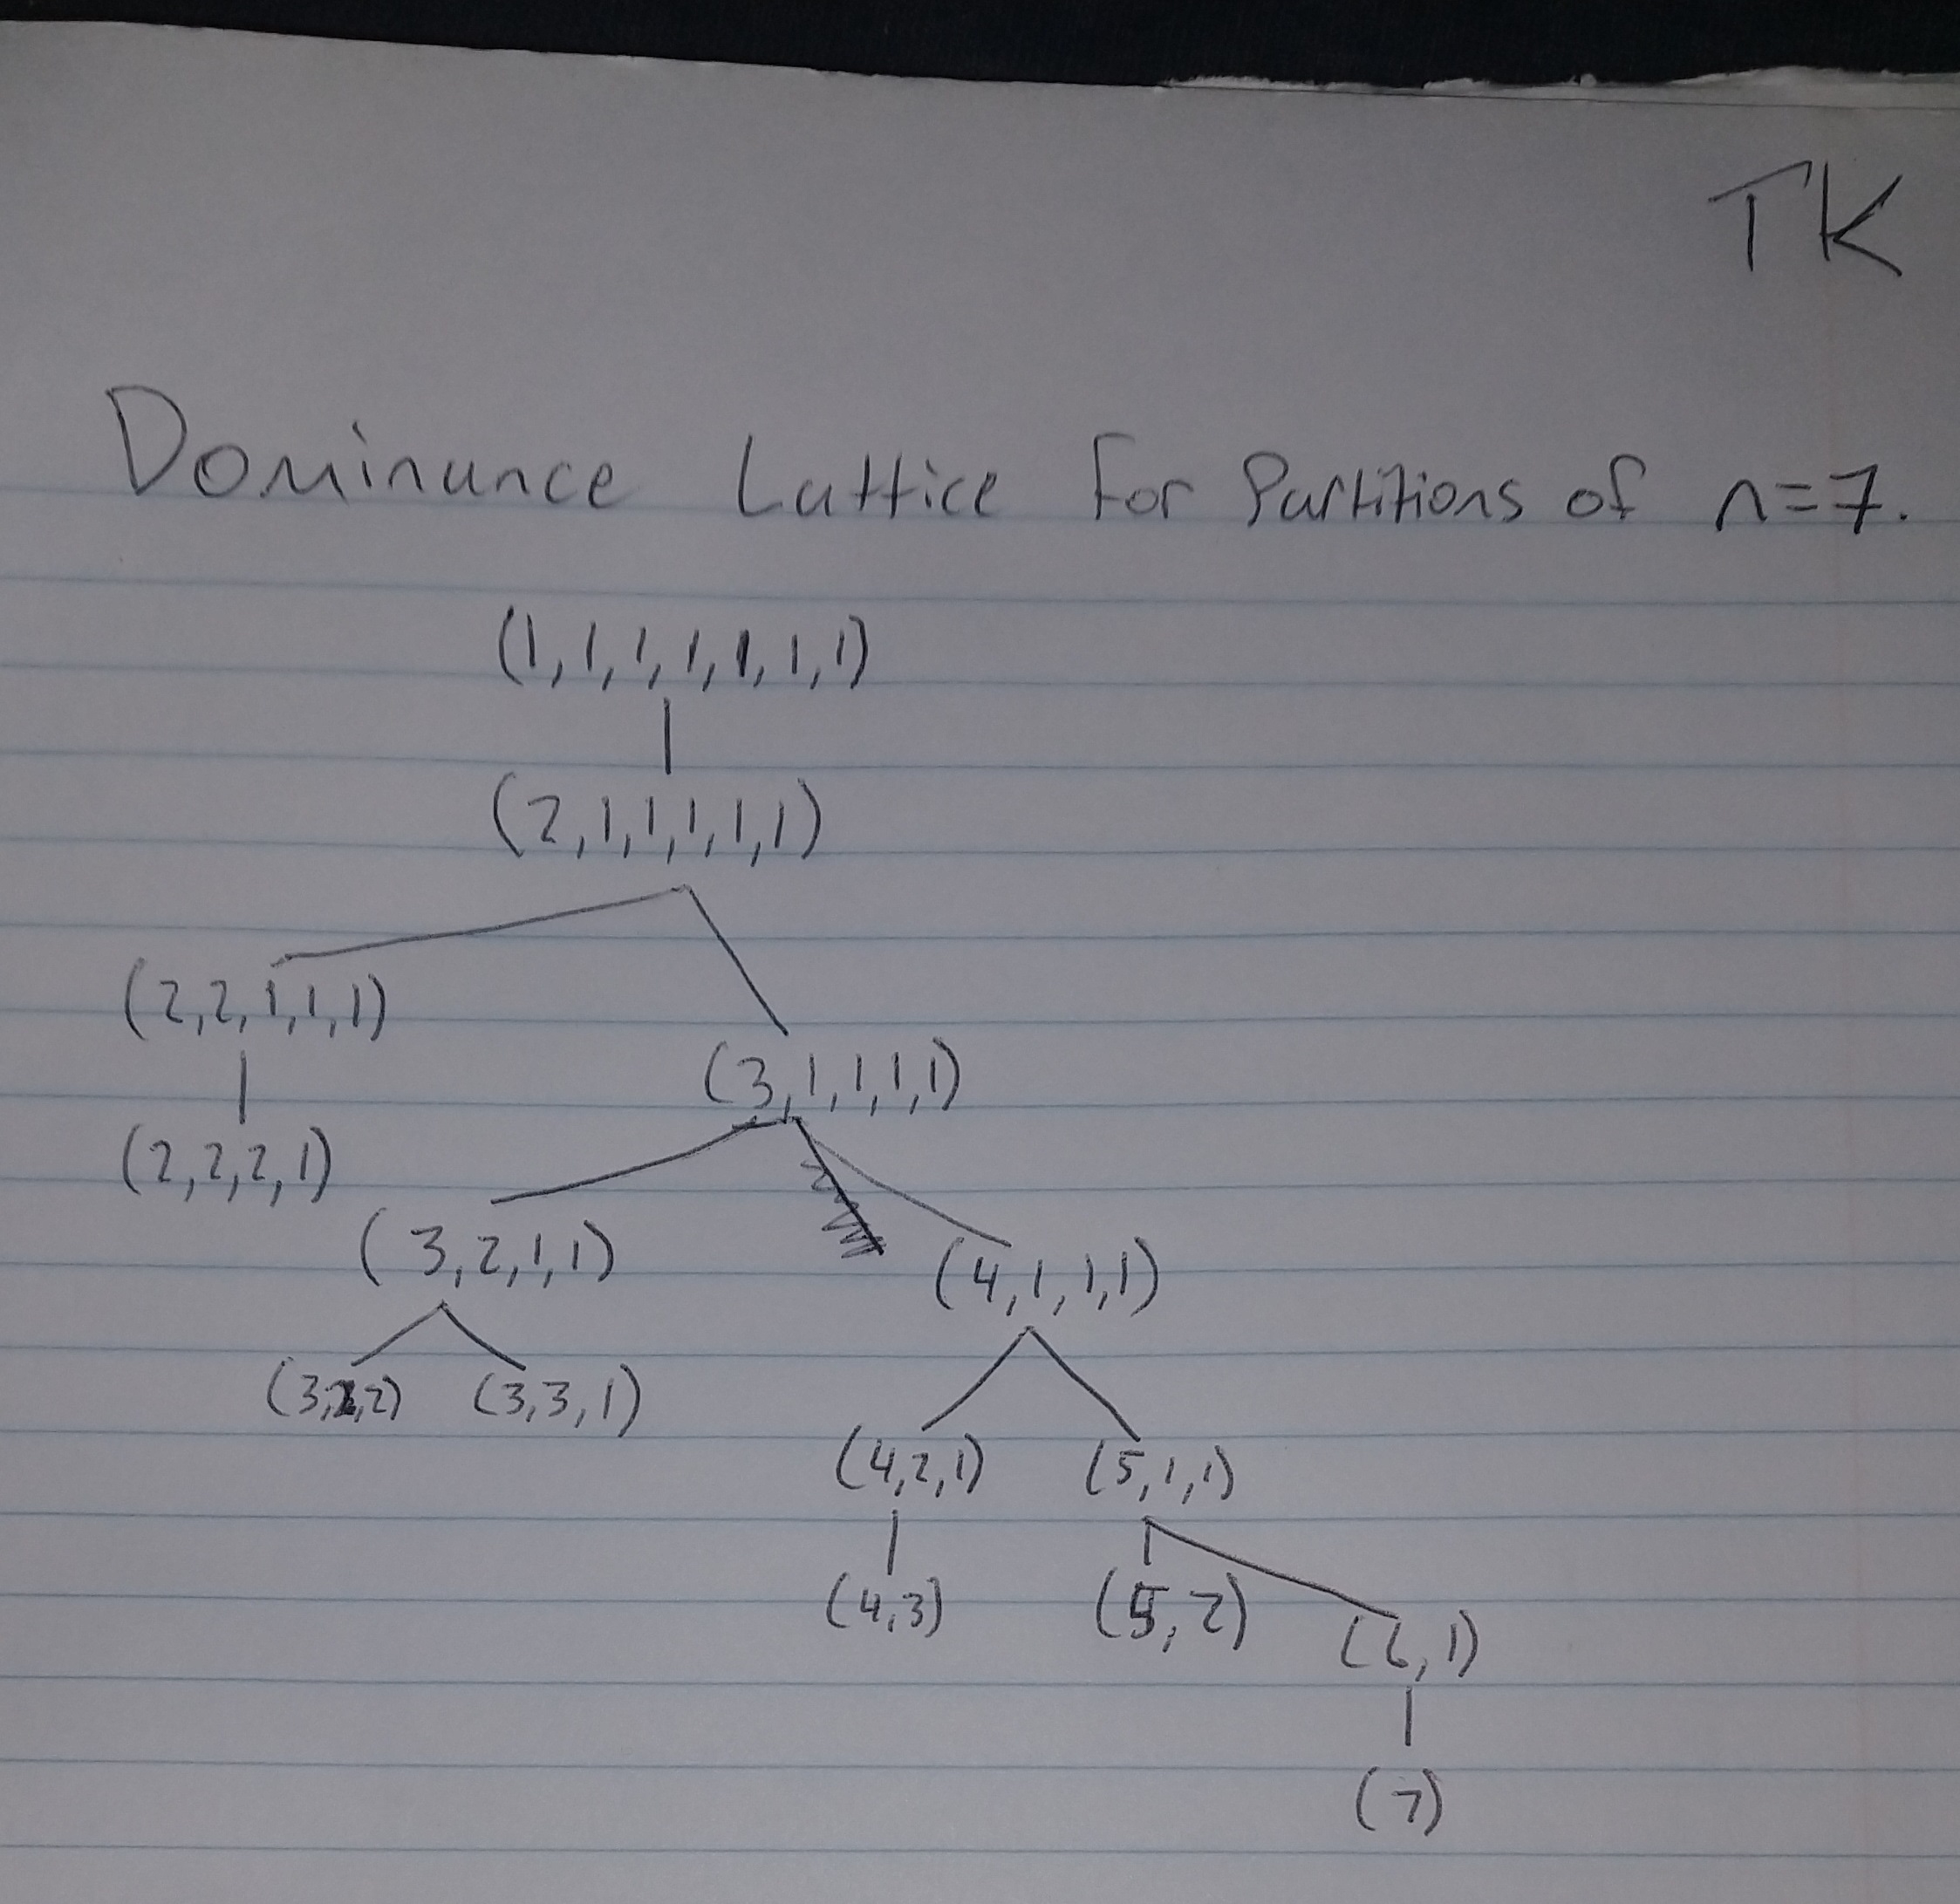 TK
Dominance Lattice For Partitions of n=7.
(1,1,1,1,1,1,1)
(2,1,1,1,1,1)
(2,2,1,1,1)
(3,1,1,1,1)
(2,2,2,1)
(3,2,1,1)
(4,1,1,1)
(3,2,2) (3,3,1)
(4,2,1) (5,1,1)
(4,3) (5,2)
(6,1)
(7)